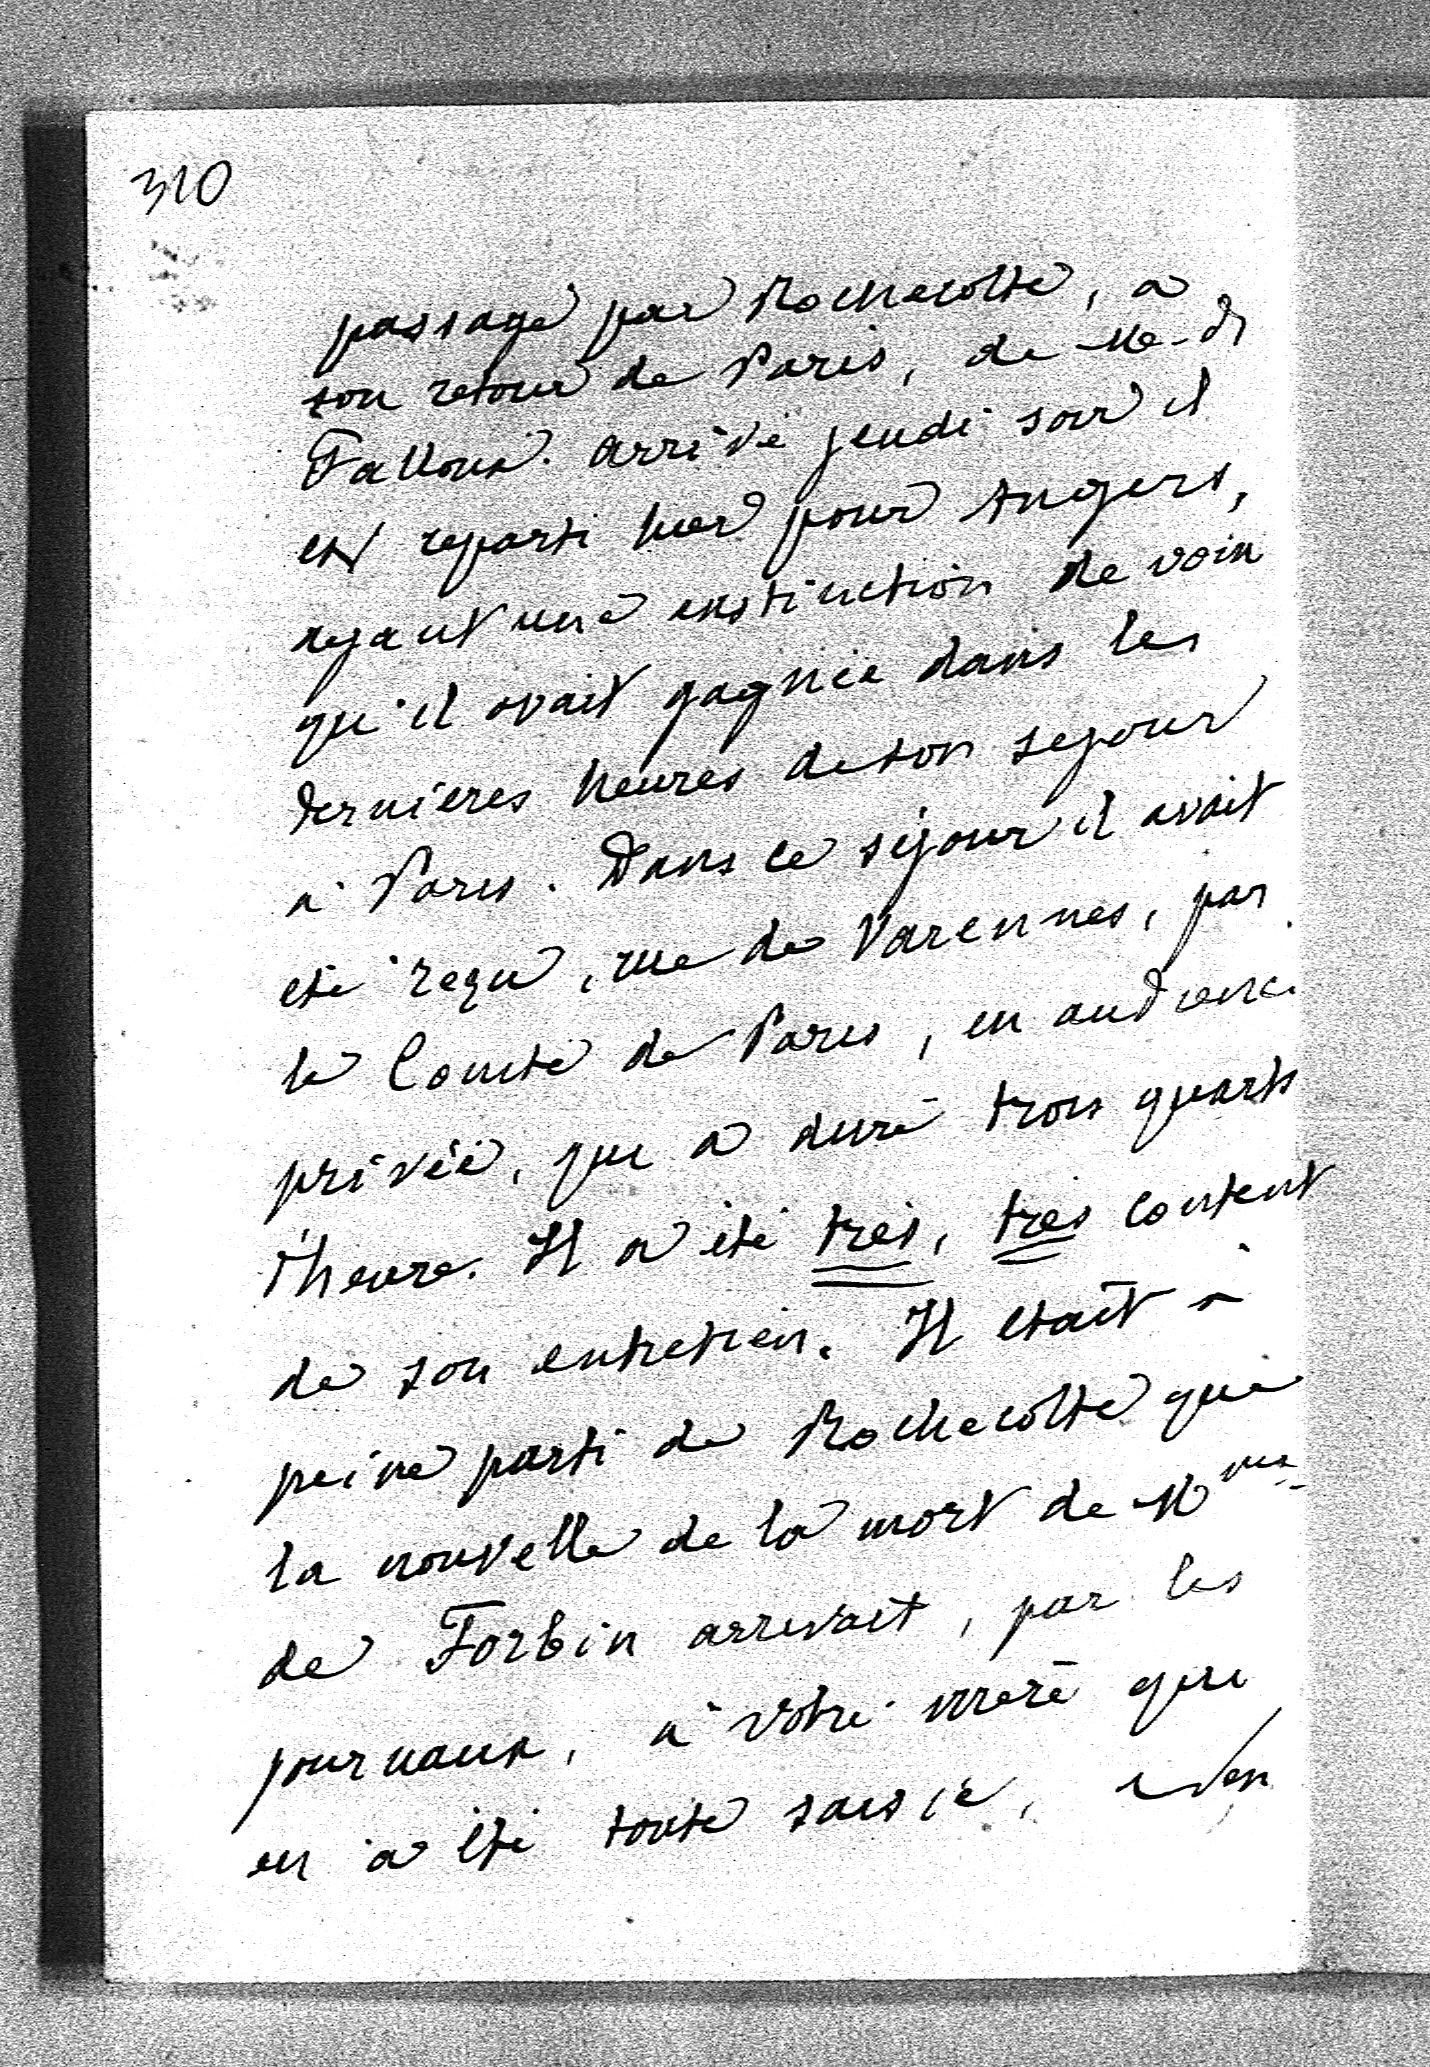 310
passage par Rochecotte, à
son retour de Paris, de M. de
Falloux. Arrivé jeudi soir il
est reparti hier pour Angers,
ayant une extinction de voix
qu'il avait gagnée dans les
dernieres heures de son sejour
à Paris. Dans ce séjour il avait
été reçu, rue de Varennes, par
le Comte de Paris, en audience
privée, qui a duré trois quarts
d'heure. Il a été très, très content
de son entretien. Il était à
peine parti de Rochecotte que
la nouvelle de la mort de Mme
de Forbin arrivait, par les
journaux, à votre mère qui
en a été toute saisie,